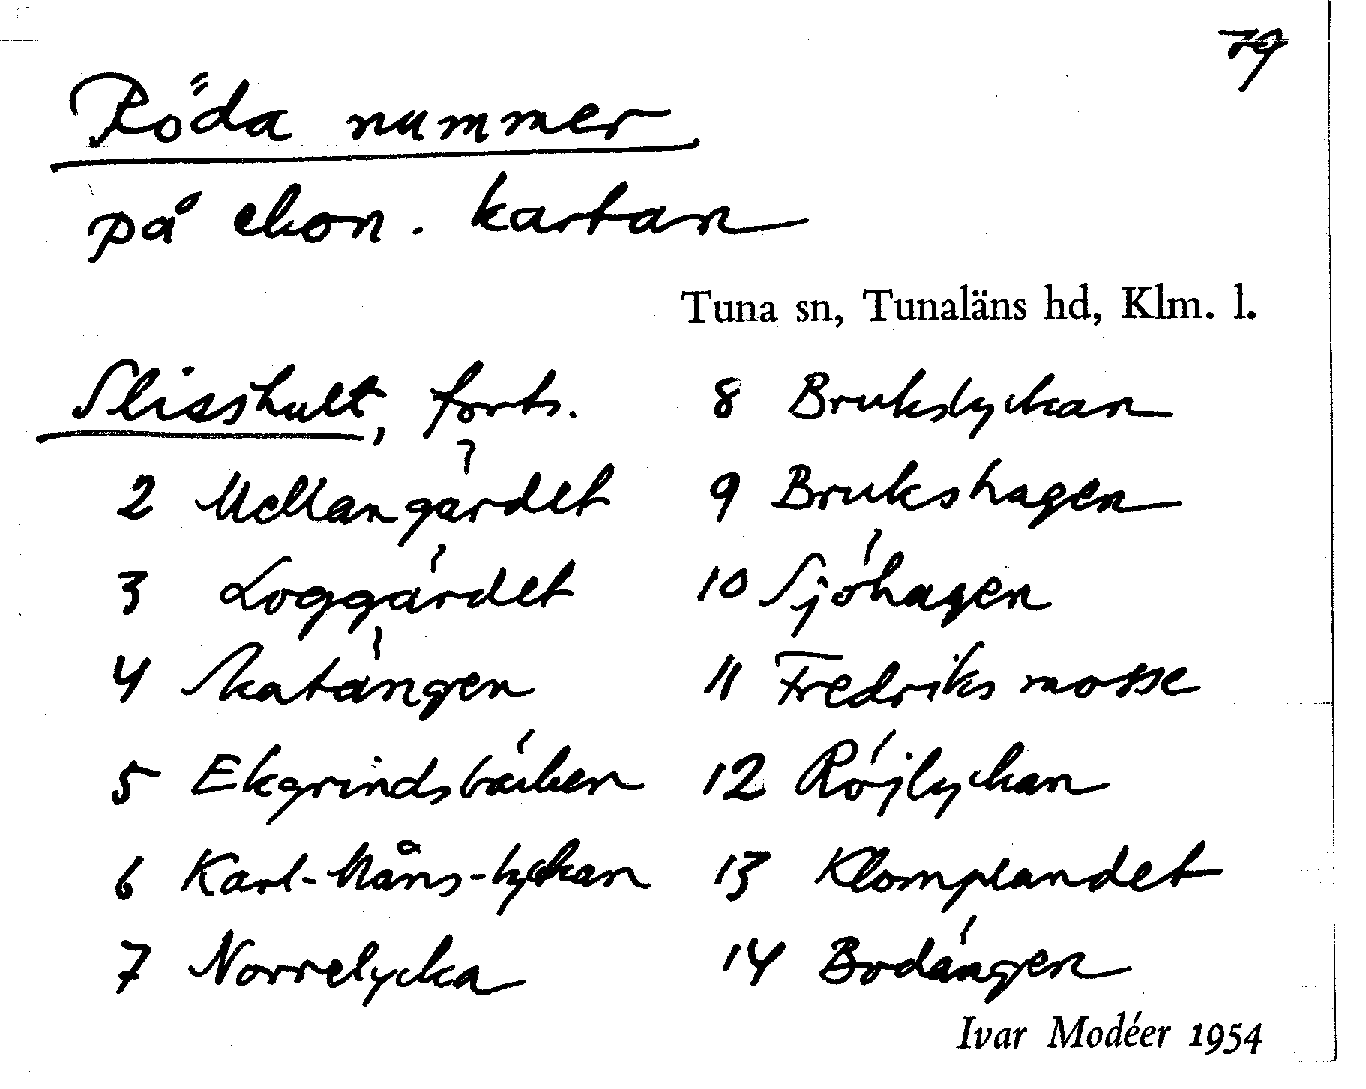 79
Röda nummer
på ekon. kartan
Tuna sn, Tunaläns hd, Klm. l.
Slisshult, forts.
2 Mellangärdet
3 Loggärdet
4 Skatängen
5 Ekgrindsbäcken
6 Karl-Måns-lyckan
7 Norrelycka
8 Brukslyckan
9 Brukshagen
10 Sjöhagen
11 Fredriks mosse
12 Röjlyckan
13 Klomplandet
14 Bodängen
Ivar Modéer 1954